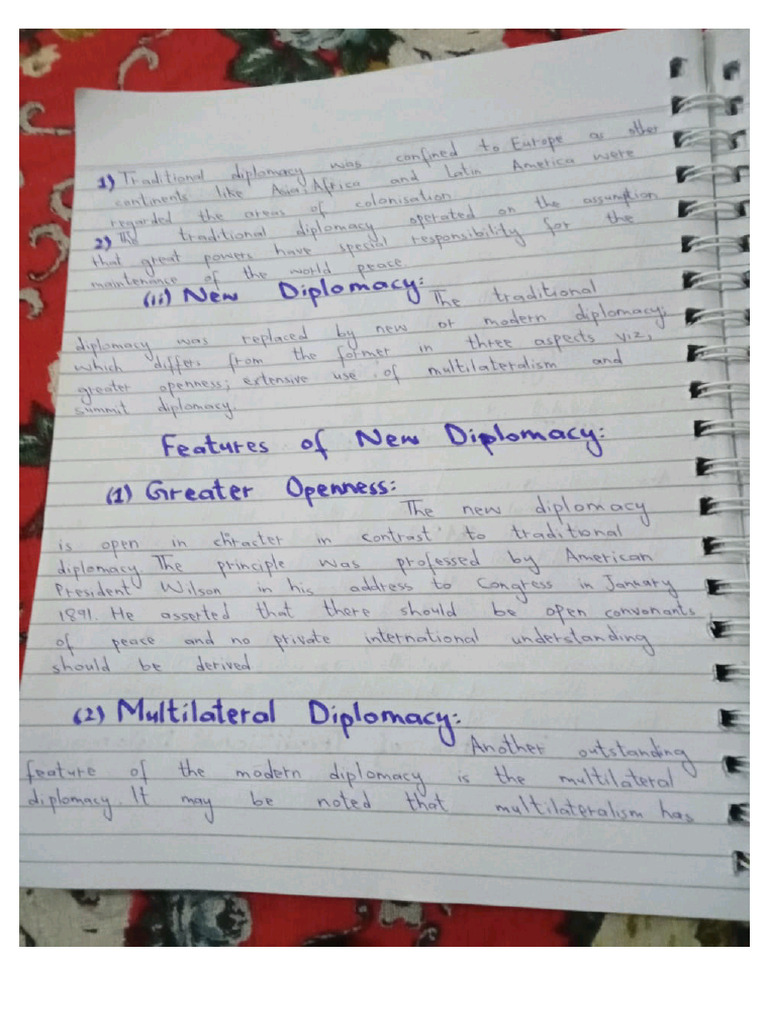 1) Traditional diplomacy was confined to Europe as other
cantinents like Asia, Africa and Latin America were
regarded the areas of colonisation.
2) The traditional diplomacy operated on the assumption
that great powers have special responsibility for the
maintenance of the world peace
(ii) New Diplomacy:
The traditional
diplomacy was replaced by new or modern diplomacy;
which differs from the former in three aspects viz,
greater openness; extensive use of multilateralism and
summit diplomacy.
Features of New Diplomacy:
(1) Greater Openness:
The new diplomacy
is open in chracter in contrast to traditional
diplomacy. The principle was professed by American
President Wilson in his address to Congress in January
1891. He asserted that there should be open convonants
of peace and no private international understanding
should be derived
(2) Multilateral Diplomacy:
Another outstanding
feature of the modern diplomacy is the multilateral
diplomacy. It may be noted that multilateralism has